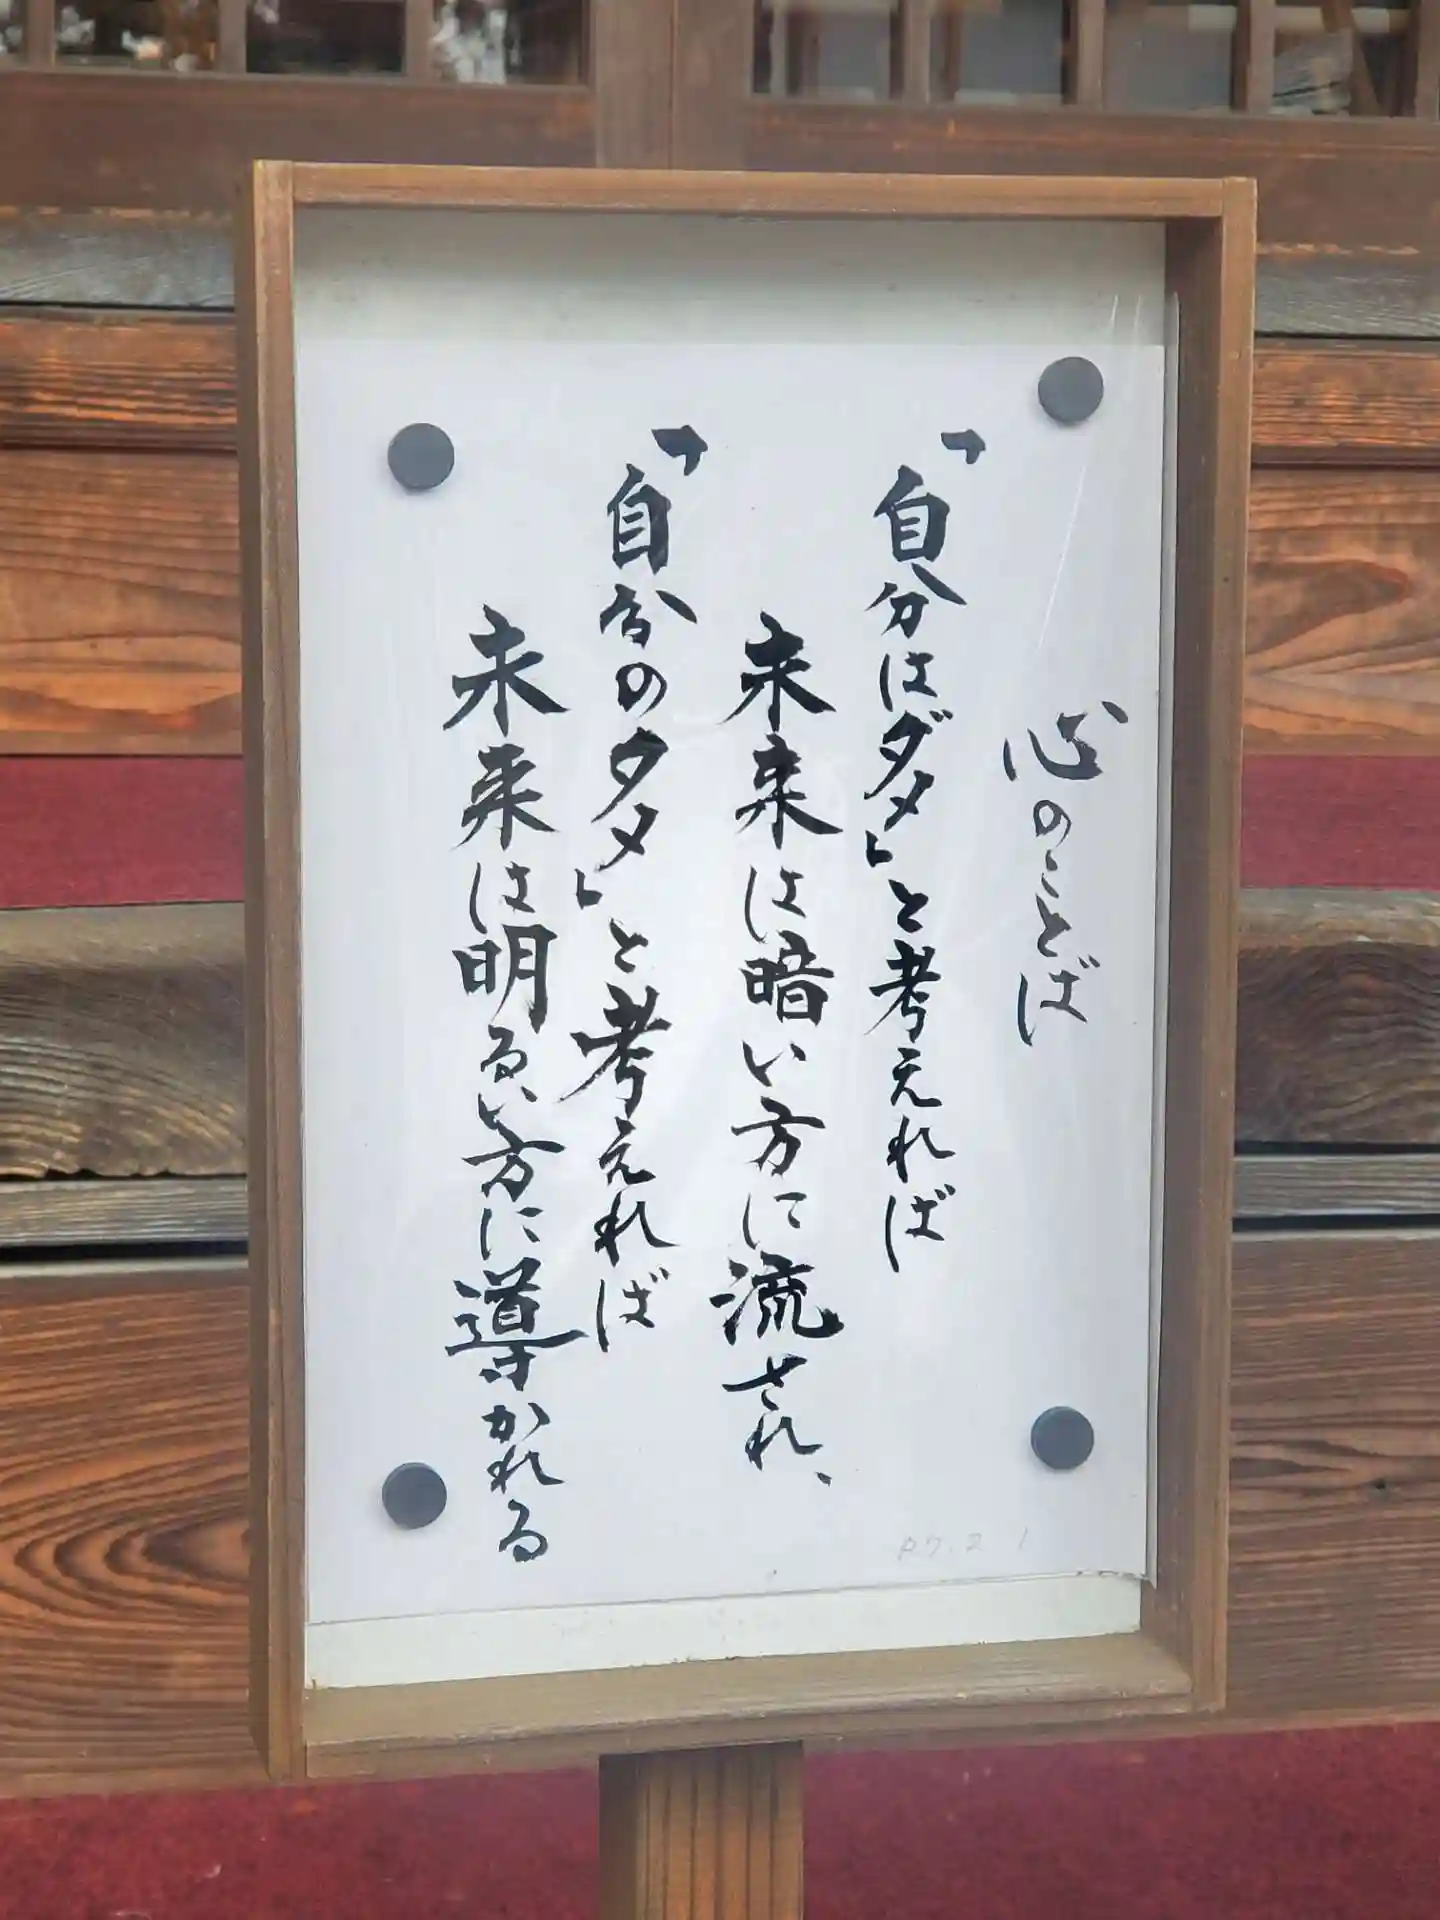 心のことば
「自分はダメ」と考えれば
未来は暗い方に流され、
「自分のタメ」と考えれば
未来は明るい方に導かれる
R7.2 1